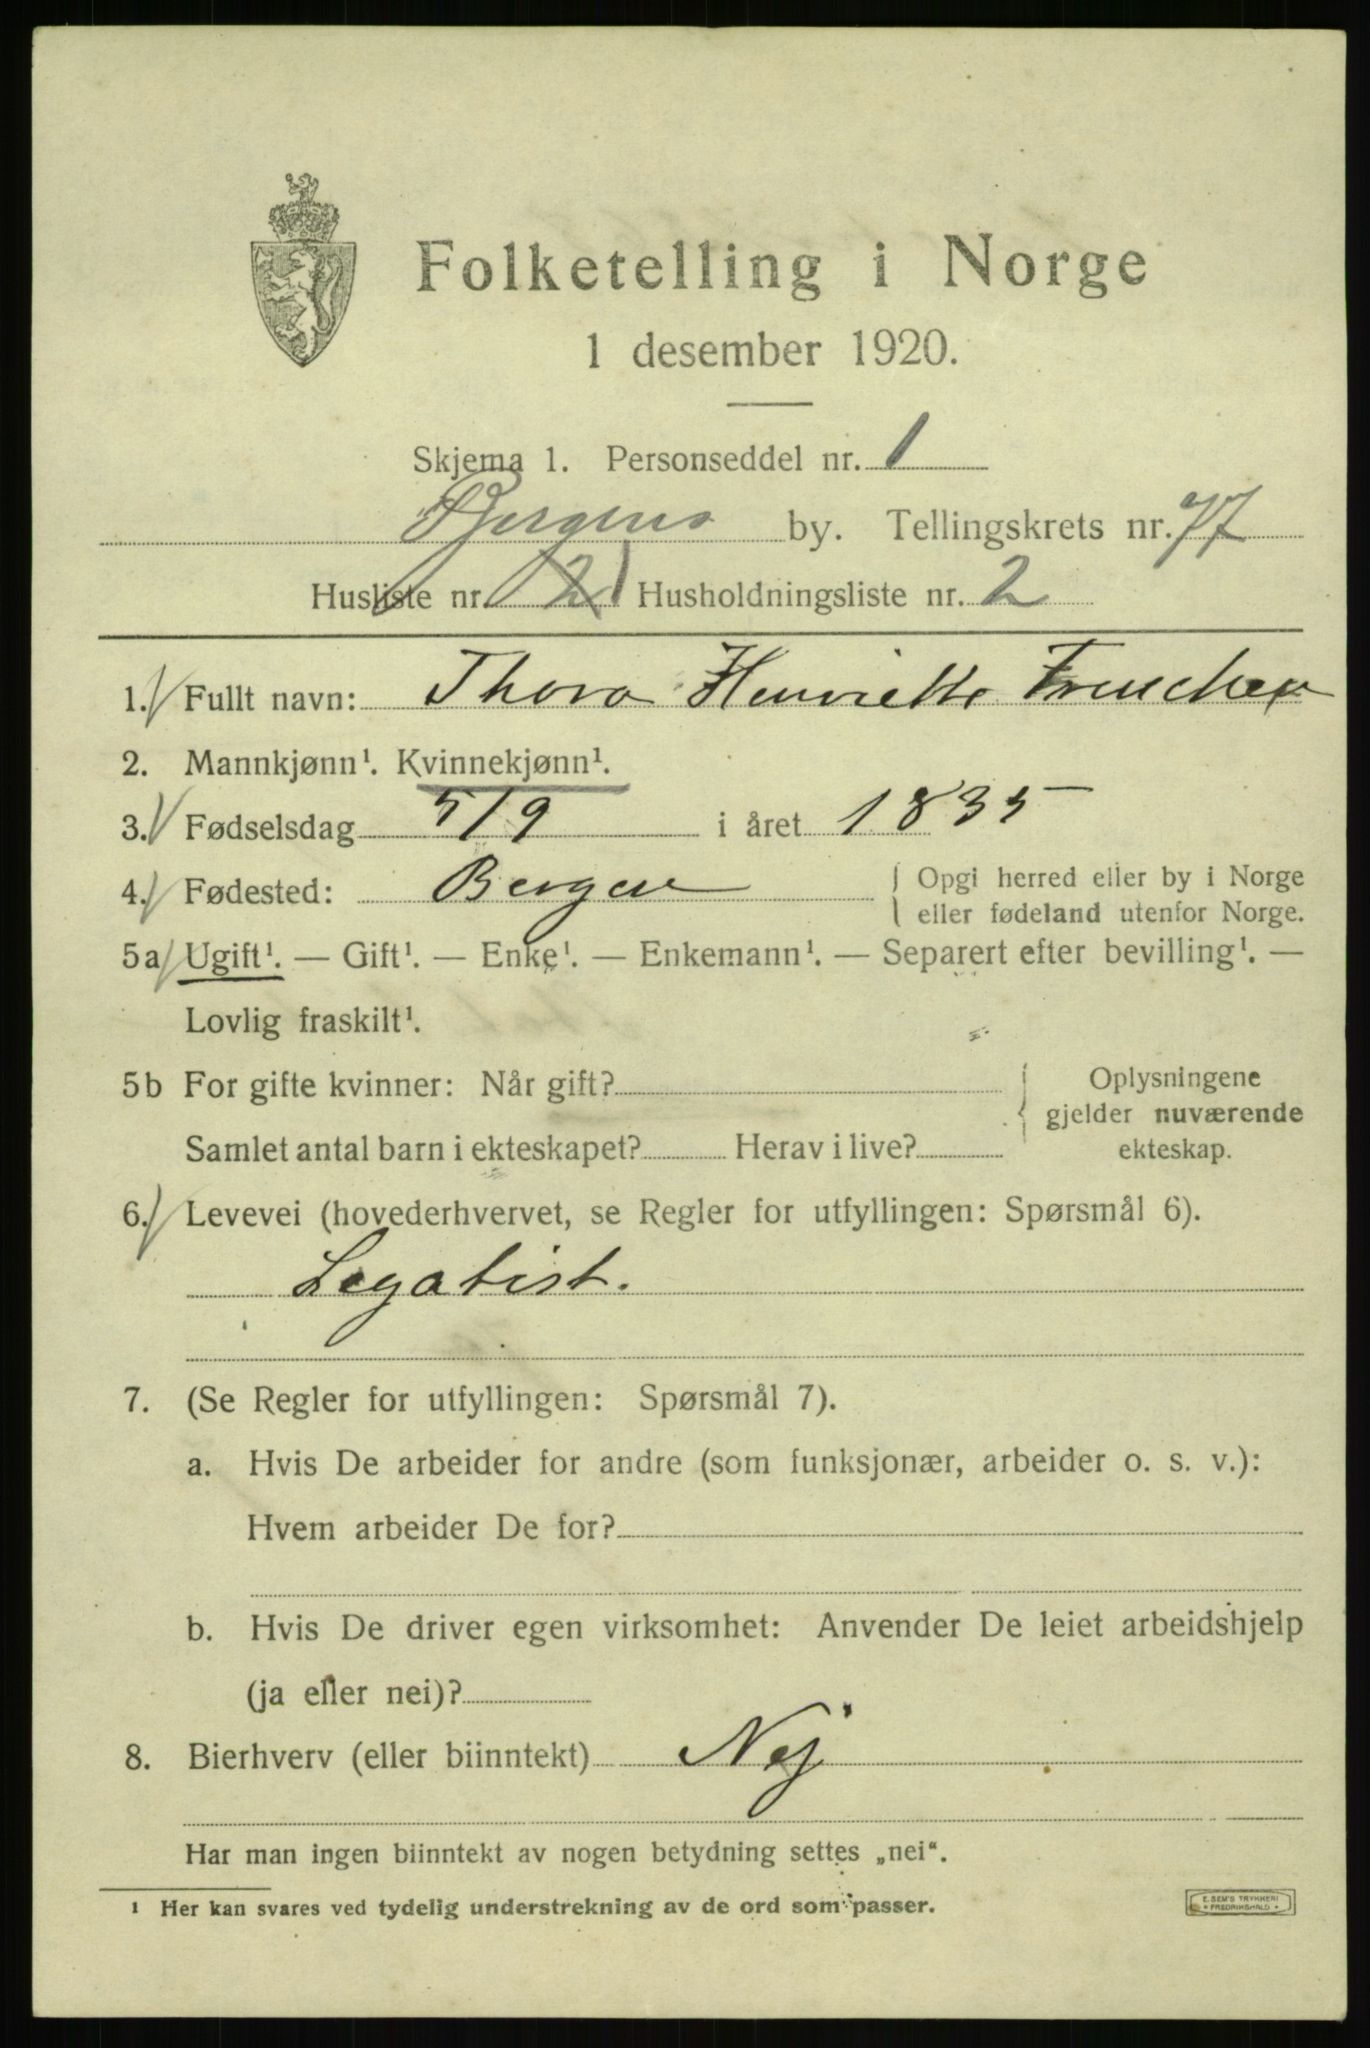 Folketelling i Norge
1 desember 1920.
Skjema 1. Personseddel nr. 1
Bergens by. Tellingskrets nr. 77
Husliste nr. 2 1 Husholdningsliste nr. 2
1. Fullt navn: Thora Henriette
2. Mannkjønn¹. Kvinnekjønn¹.
3. Fødselsdag 5/9 i året 1835
4. Fødested: Bergen { Opgi herred eller by i Norge
eller fødeland utenfor Norge.
5a Ugift¹. — Gift¹. — Enke¹. — Enkemann¹. — Separert efter bevilling¹. —
Lovlig fraskilt¹.
5b For gifte kvinner: Når gift? { Oplysningene
gjelder nuværende
Samlet antal barn i ekteskapet? Herav i live? ekteskap.
6. Levevei (hovederhvervet, se Regler for utfyllingen: Spørsmål 6).
Legatist.
7. (Se Regler for utfyllingen: Spørsmål 7).
a. Hvis De arbeider for andre (som funksjonær, arbeider o. s. v.):
Hvem arbeider De for?
b. Hvis De driver egen virksomhet: Anvender De leiet arbeidshjelp
(ja eller nei)?
8. Bierhverv (eller biinntekt) Nej
Har man ingen biinntekt av nogen betydning settes „nei“.
¹ Her kan svares ved tydelig understrekning av de ord som passer.
E. SEM'S TRYKKERI
FREDRIKSHALD